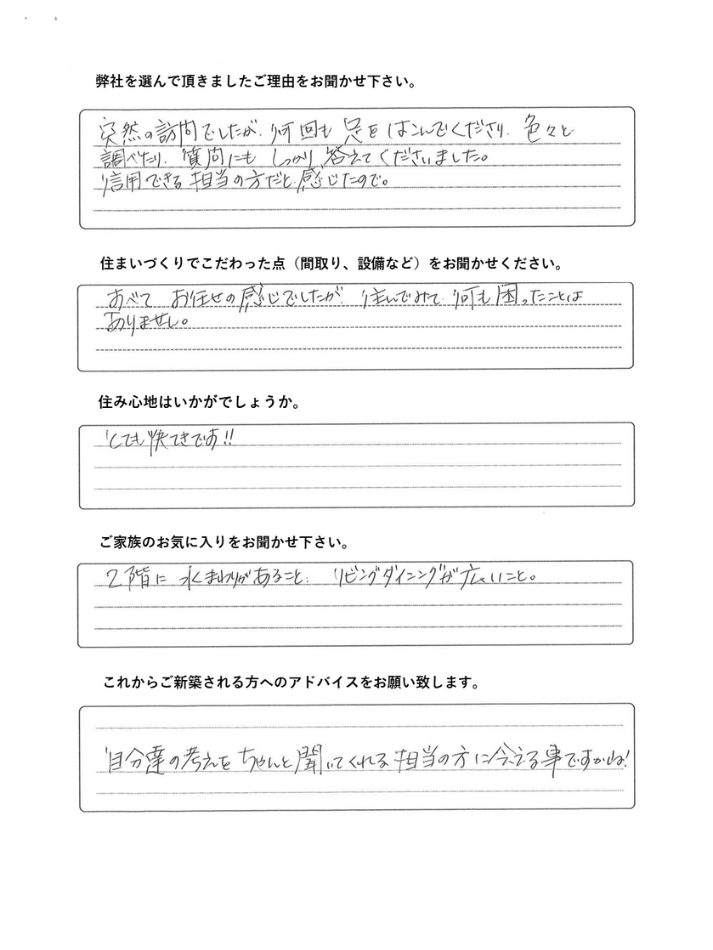 弊社を選んで頂きましたご理由をお聞かせ下さい。
突然の訪問でしたが、何回も足をはこんでくださり、色々と
調べたり、質問にもしっかり答えてくださいました。
信用できる担当の方だと感じたので。
住まいづくりでこだわった点（間取り、設備など）をお聞かせください。
すべてお任せの感じでしたが、住んでみて何も困ったことは
ありません。
住み心地はいかがでしょうか。
とても快てきです!!
ご家族のお気に入りをお聞かせ下さい。
2階に水まわりがあること、リビングダイニングが広いこと。
これからご新築される方へのアドバイスをお願い致します。
自分達の考えをちゃんと聞いてくれる担当の方に会える事ですかね!